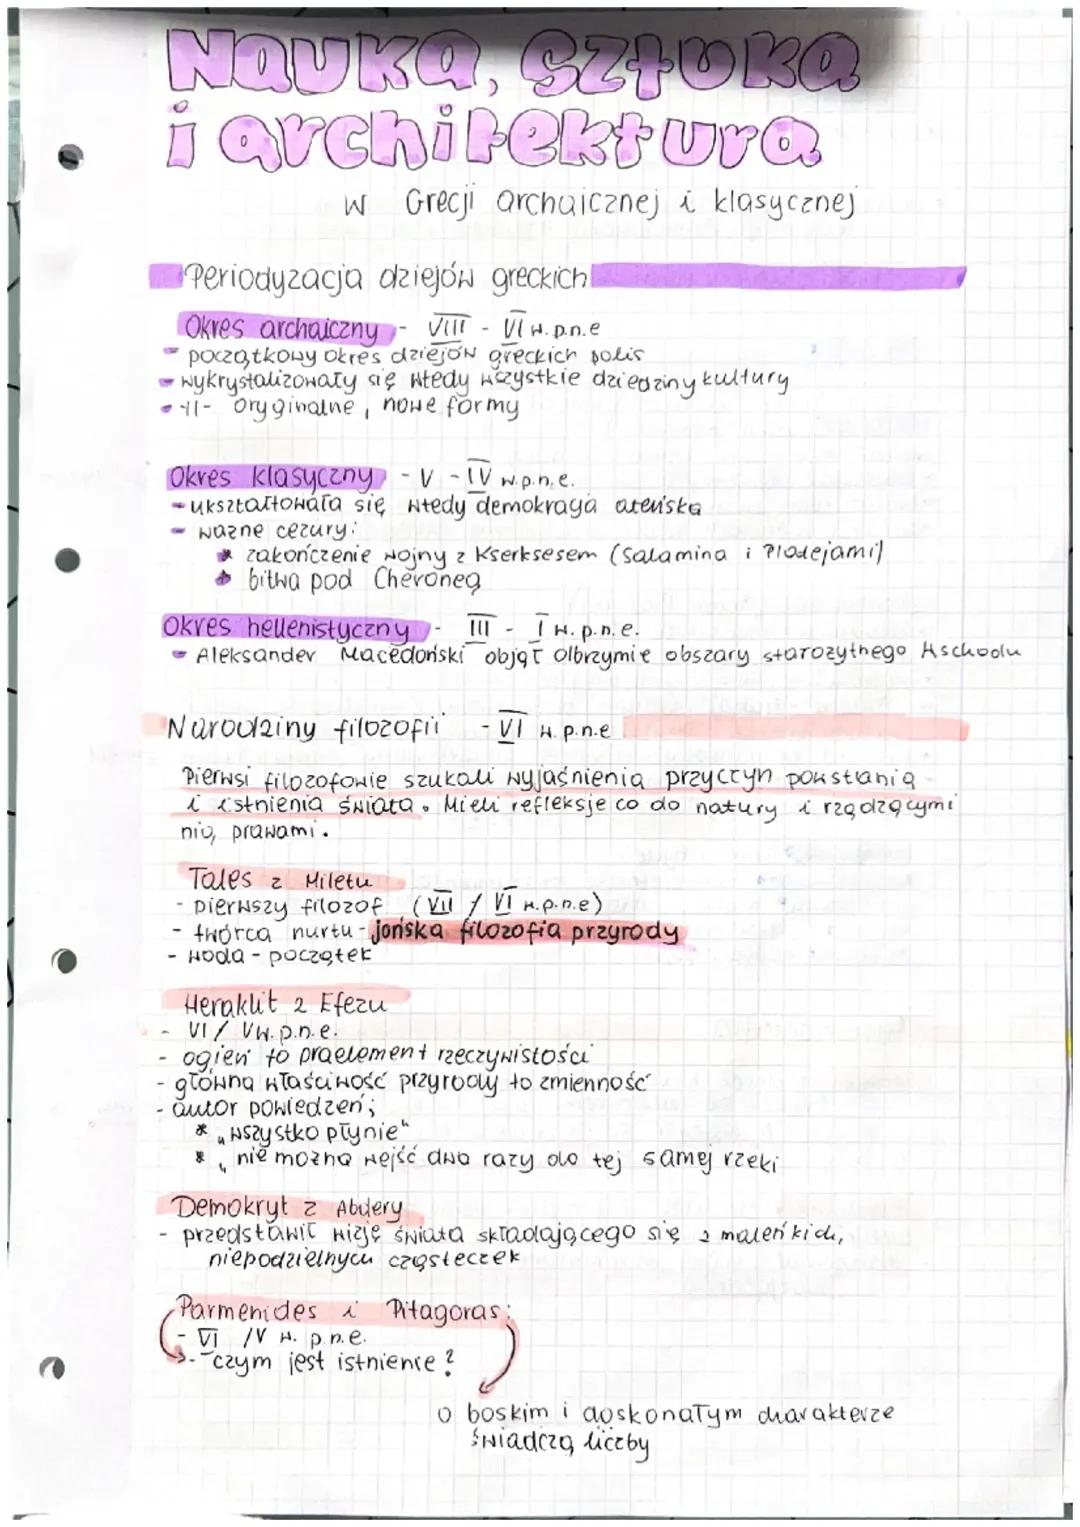 Nauka, sztuka
i architektura
w Grecji archaicznej i klasycznej
Periodyzacja dziejów greckich
Okres archaiczny - VIII - VI w. p.n.e
- początkowy okres dziejów greckich polis
- wykrystalizowały się wtedy wszystkie dziedziny kultury
- -II- oryginalne, nowe formy
Okres klasyczny - V - IV w.p.n.e.
- ukształtowała się wtedy demokracja ateńska
- ważne cezury:
* zakończenie wojny z Kserksesem (Salamina i Platejami)
* bitwa pod Cheroneą
Okres hellenistyczny - III - I w. p.n.e.
- Aleksander Macedoński objął olbrzymie obszary starożytnego Wschodu
Narodziny filozofii - VI w. p.n.e
Pierwsi filozofowie szukali wyjaśnienia przyczyn powstania
i istnienia świata. Mieli refleksje co do natury i rządzącymi
nią prawami.
Tales z Miletu
- pierwszy filozof (VII / VI w.p.n.e)
- twórca nurtu - jońska filozofia przyrody
- woda - początek
Heraklit z Efezu
- VI / V w. p.n.e.
- ogień to praelement rzeczywistości
- główną właściwość przyrody to zmienność
- autor powiedzeń;
* "wszystko płynie"
* "nie można wejść dwa razy do tej samej rzeki
Demokryt z Abdery
- przedstawił wizję świata składającego się z maleńkich,
niepodzielnych cząsteczek
Parmenides i Pitagoras:
- VI / V w. p.n.e.
- czym jest istnienie?
o boskim i doskonałym charakterze
świadczą liczby